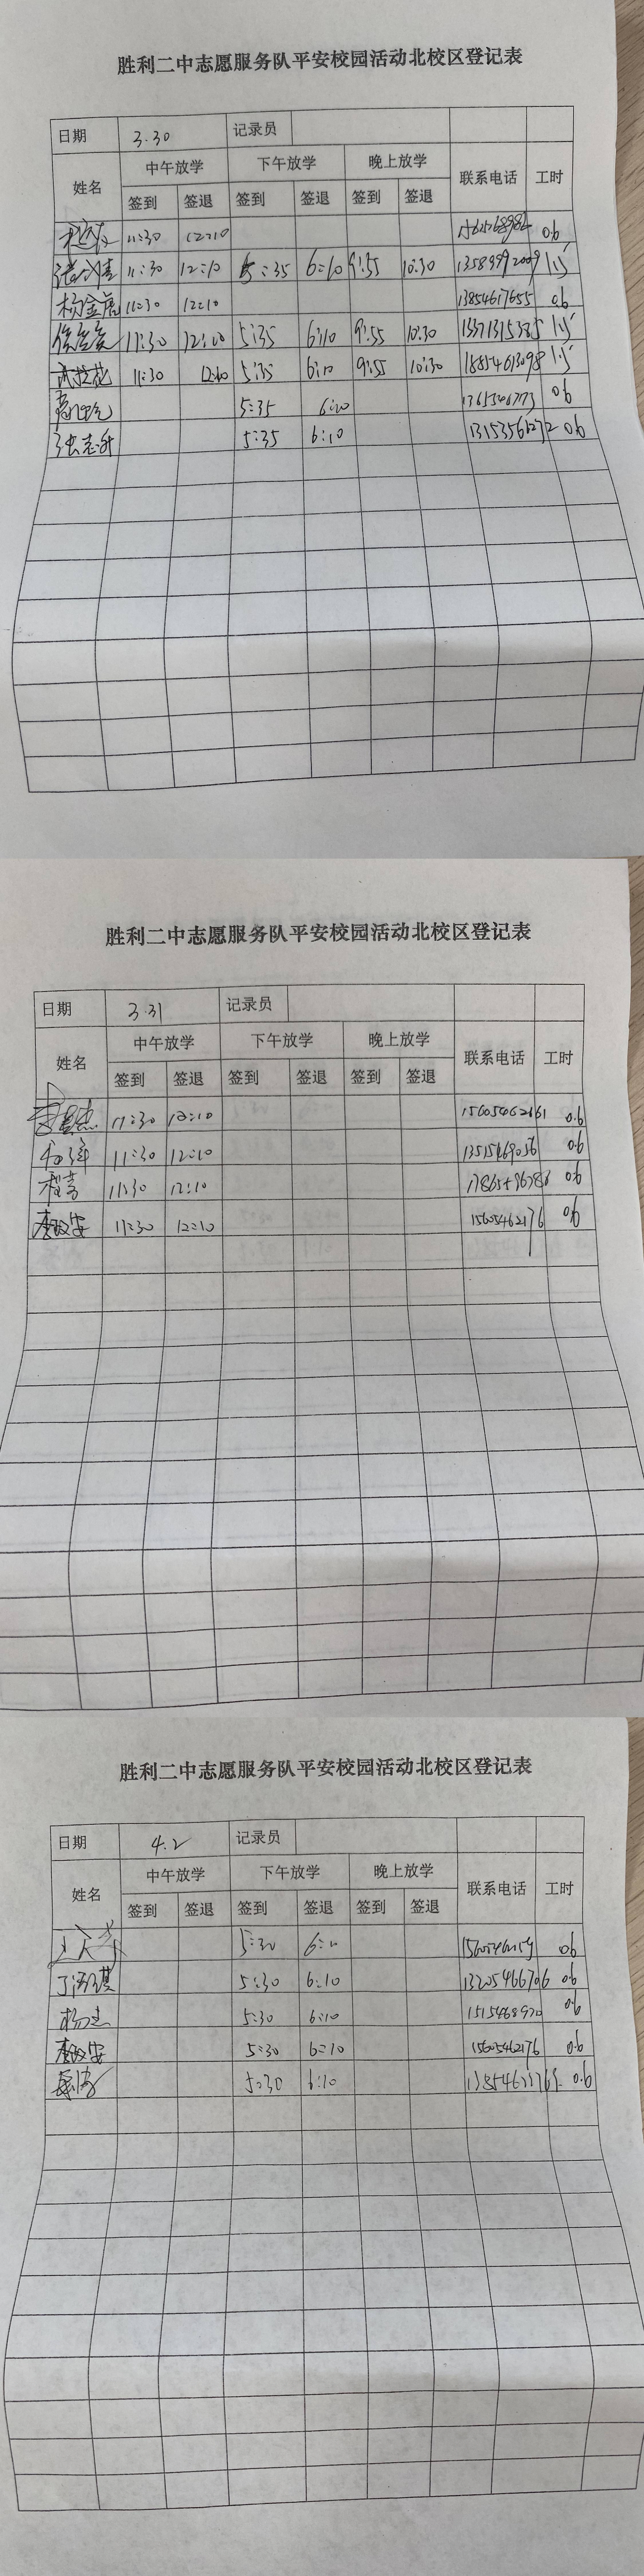 胜利二中志愿服务队平安校园活动北校区登记表
日期 3.30 记录员
姓名 中午放学 下午放学 晚上放学 联系电话 工时
签到 签退 签到 签退 签到 签退
11:30 12:10 0.6
11:30 12:10 5:35 6:10 9:55 10:30 13589992009 1.5
杨金虎 11:30 12:10 13854617655 0.6
11:30 12:10 5:35 6:10 9:55 10:30 13371315385 1.5
11:30 12:10 5:35 6:10 9:55 10:30 18854613098 1.5
5:35 6:10 0.6
张志升 5:35 6:10 13153561272 0.6
胜利二中志愿服务队平安校园活动北校区登记表
日期 3.31 记录员
姓名 中午放学 下午放学 晚上放学 联系电话 工时
签到 签退 签到 签退 签到 签退
11:30 12:10 15605462661 0.6
11:30 12:10 13515469056 0.6
程喜 11:30 12:10 0.6
李政安 11:30 12:10 15605462176 0.6
胜利二中志愿服务队平安校园活动北校区登记表
日期 4.2 记录员
姓名 中午放学 下午放学 晚上放学 联系电话 工时
签到 签退 签到 签退 签到 签退
5:30 6:10 0.6
5:30 6:10 13205466706 0.6
杨杰 5:30 6:10 0.6
李政安 5:30 6:10 15605462176 0.6
5:30 6:10 0.6